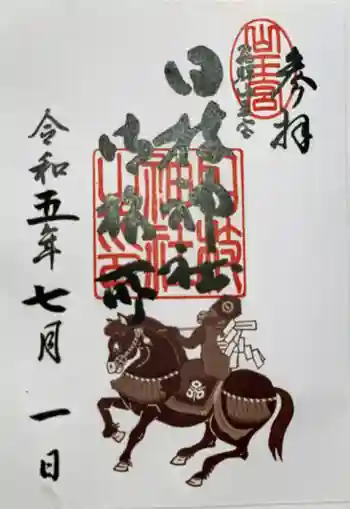 参拝
山王宮
日枝神社
御旅所
令和五年七月一日